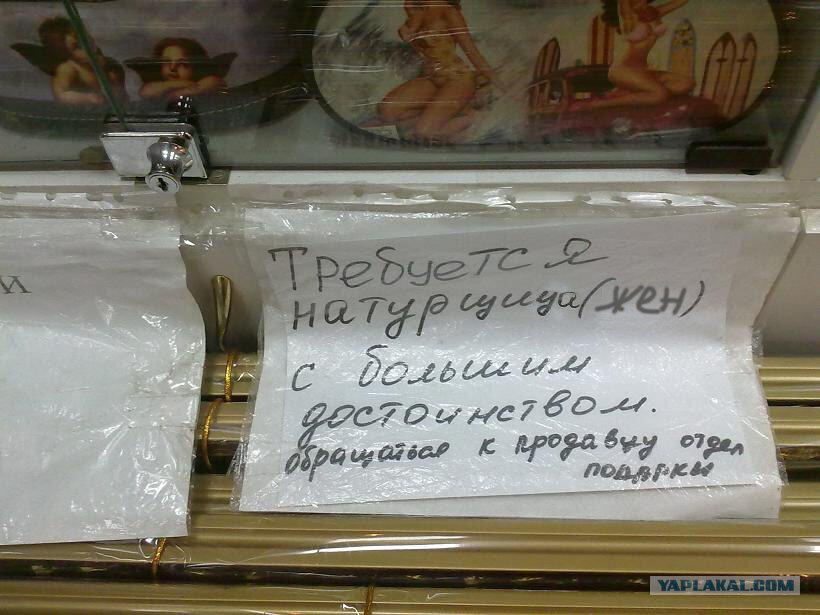 и
Требуется
натурщица (жен)
с большим
достоинством.
обращаться к продавцу отдел
подарки
YAPLAKAL.COM